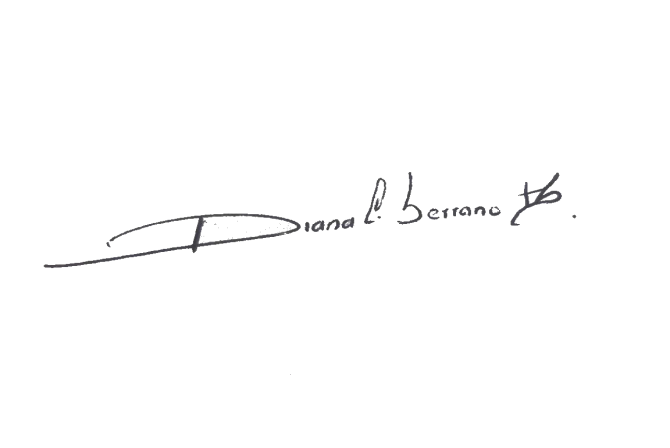 Diana C. Serrano